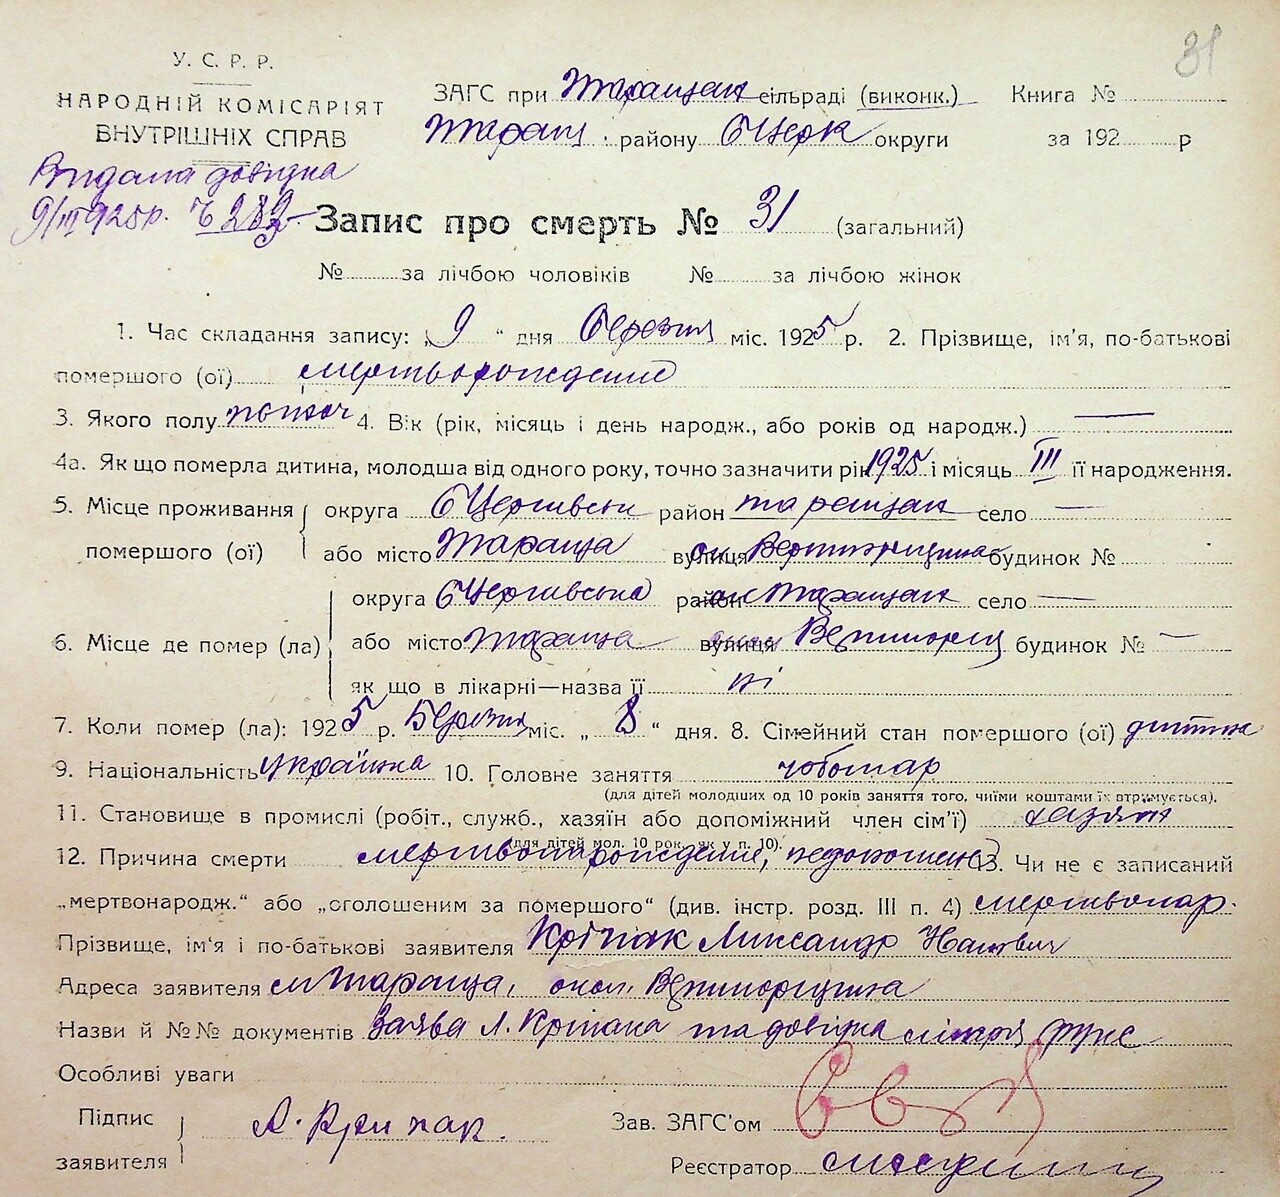 31
У. С. Р. Р.
НАРОДНІЙ КОМІСАРІЯТ
ВНУТРІШНІХ СПРАВ
ЗАГС при Таращан сільраді (виконк.) Книга №
Таращ. району БЦерк округи за 192 р
Видана довідка
9/III 1925р. Ч 282
Запис про смерть № 31 (загальний)
№ за лічбою чоловіків № за лічбою жінок
1. Час складання запису: „9“ дня Березня міс. 1925 р. 2. Прізвище, ім'я, по-батькові
помершого (ої) мертворождение
3. Якого полу 4. Вік (рік, місяць і день народж., або років од народж.) —
4а. Як що померла дитина, молодша від одного року, точно зазначити рік 1925 і місяць III її народження.
5. Місце проживання округа БЦерківськ район Таращан село —
помершого (ої) або місто Тараща вулиця будинок №
округа БЦерківська район Таращан село —
6. Місце де помер (ла) або місто Тараща вулиця будинок № —
як що в лікарні—назва її ні
7. Коли помер (ла): 1925 р. Березня міс. „8“ дня. 8. Сімейний стан помершого (ої) дитина
9. Національність українка 10. Головне заняття чоботар
(для дітей молодших од 10 років заняття того, чиїми коштами їх втримується).
11. Становище в промислі (робіт., служб., хазяїн або допоміжний член сім'ї) хазяїн
(для дітей мол. 10 рок. як у п. 10).
12. Причина смерти мертворождение, недоношен 13. Чи не є записаний
„мертвонародж.“ або „оголошеним за помершого“ (див. інстр. розд. III п. 4) мертвонар.
Прізвище, ім'я і по-батькові заявителя Кріпак
Адреса заявителя м Тараща, окол.
Назви й №№ документів Заява А. Кріпака та довідка
Особливі уваги
Підпис заявителя А. Крипак.
Зав. ЗАГС'ом
Реєстратор